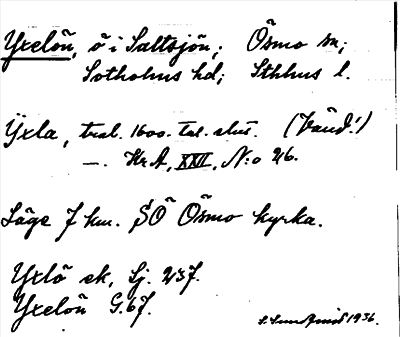 Yxelön, ö i Saltsjön; Ösmo sn;
Sotholms hd; Sthlms l.
Ÿxla, trol. 1600-tal. slut. (Vänd!)
—. Kr.A, XXII, N:o 26.
Läge 7 km. SÖ Ösmo kyrka.
Yxlö ek, Sj. 237.
Yxelön G.67.
1936.